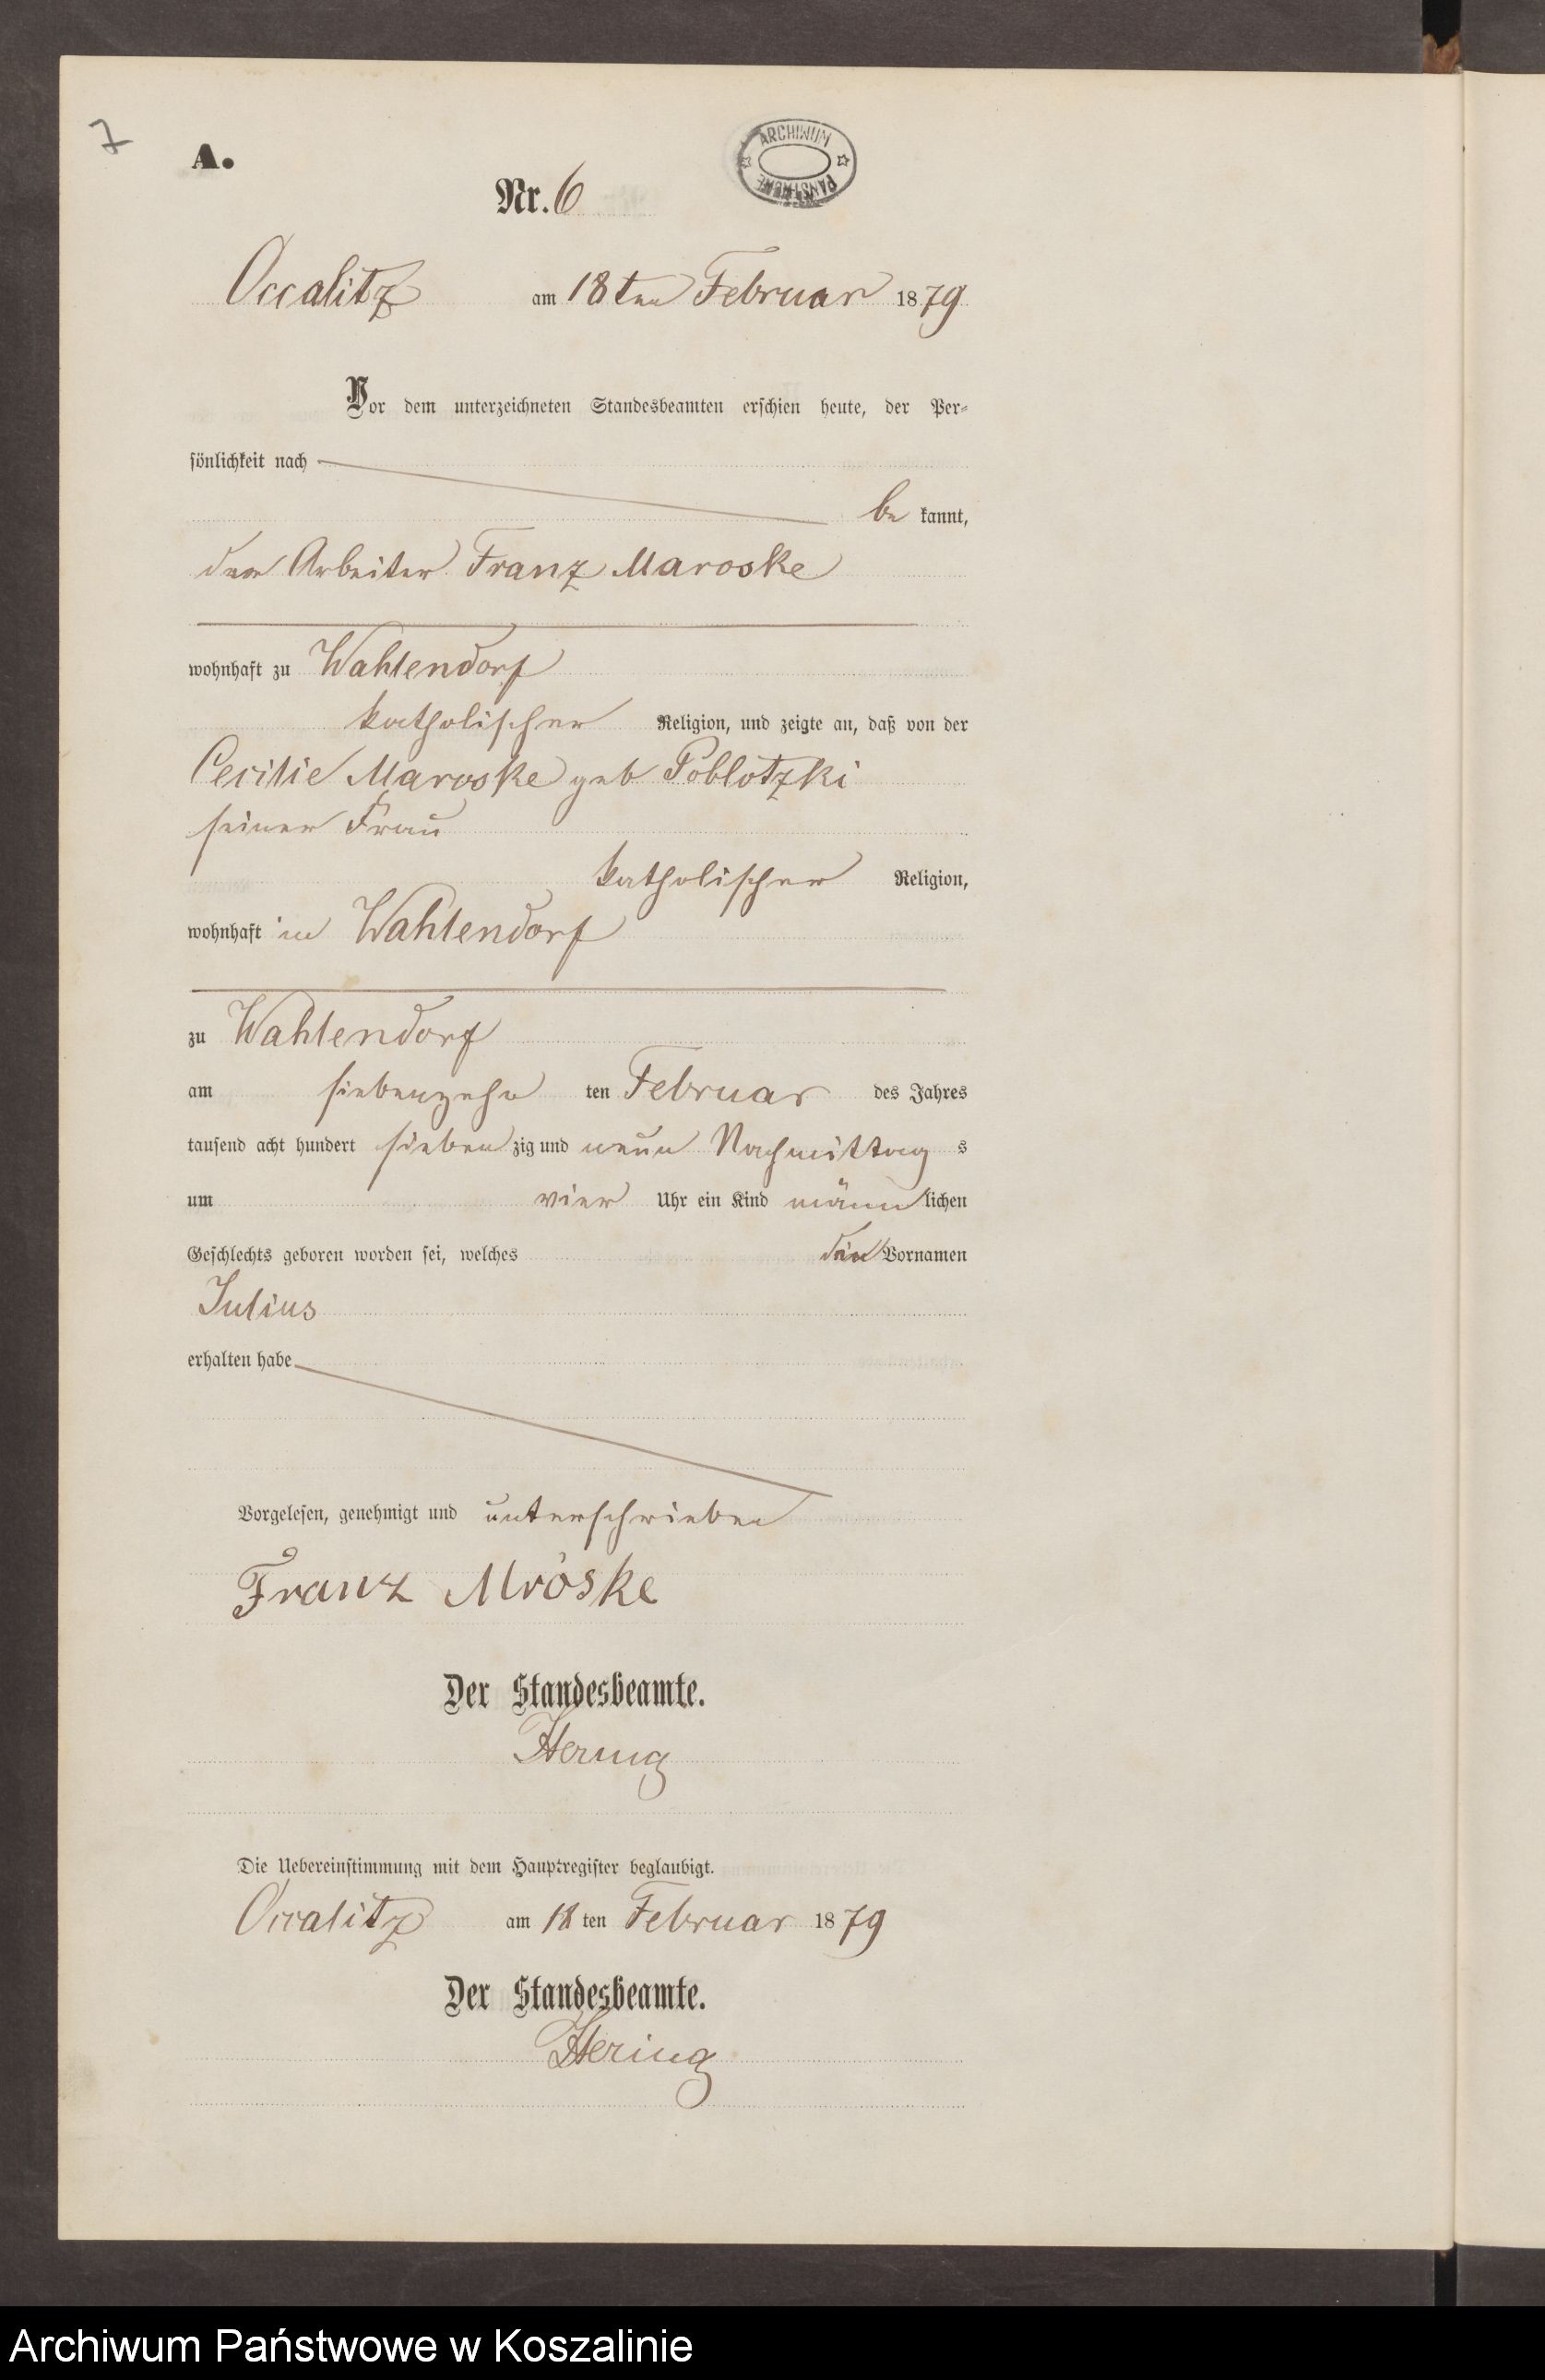 7
A.
ARCHIWUM
PAŃSTWOWE
Nr. 6
Occalitz am 18ten Februar 1879
Vor dem unterzeichneten Standesbeamten erschien heute, der Per-
sönlichkeit nach
be kannt,
der Arbeiter Franz Maroske
wohnhaft zu Wahlendorf
katholischer Religion, und zeigte an, daß von der
Cecilie Maroske geb Poblotzki
seiner Frau
katholischer Religion,
wohnhaft in Wahlendorf
zu Wahlendorf
am siebenzehn ten Februar des Jahres
tausend acht hundert sieben zig und neun Nachmittag s
um vier Uhr ein Kind männ lichen
Geschlechts geboren worden sei, welches den Vornamen
Julius
erhalten habe
Vorgelesen, genehmigt und unterschrieben
Franz Mroske
Der Standesbeamte.
Hering
Die Uebereinstimmung mit dem Hauptregister beglaubigt.
Occalitz am 18 ten Februar 1879
Der Standesbeamte.
Hering
Archiwum Państwowe w Koszalinie